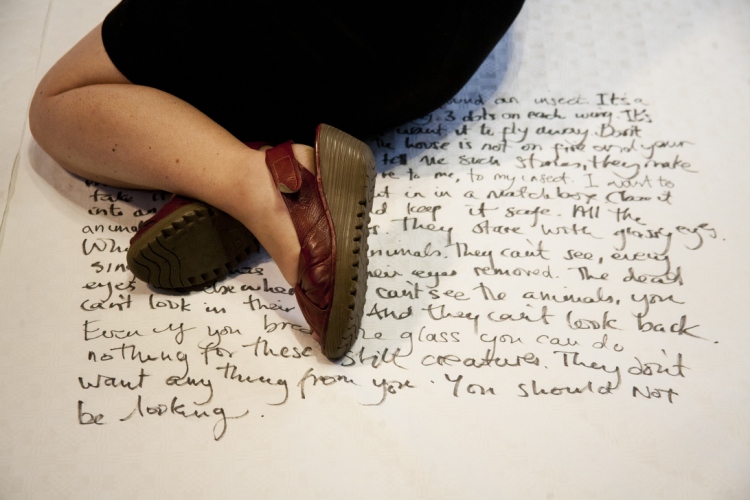 found an insect. It's a
3 dots on each wing. It's
want it to fly away. Don't
the house is not on fire and your
tell me such stories, they make
re to me, to my insect. I want to
take it in in a matchbox Clean it
into an d keep it safe. All the
animals. They stare with glassy eyes.
Wha animals. They can't see, every
sin has heir eyes removed. The dead
eyes elsewher can't see the animals, you
can't look in their And they can't look back.
Even if you brea the glass you can do
nothing for these still creatures. They don't
want anything from you. You should not
be looking.